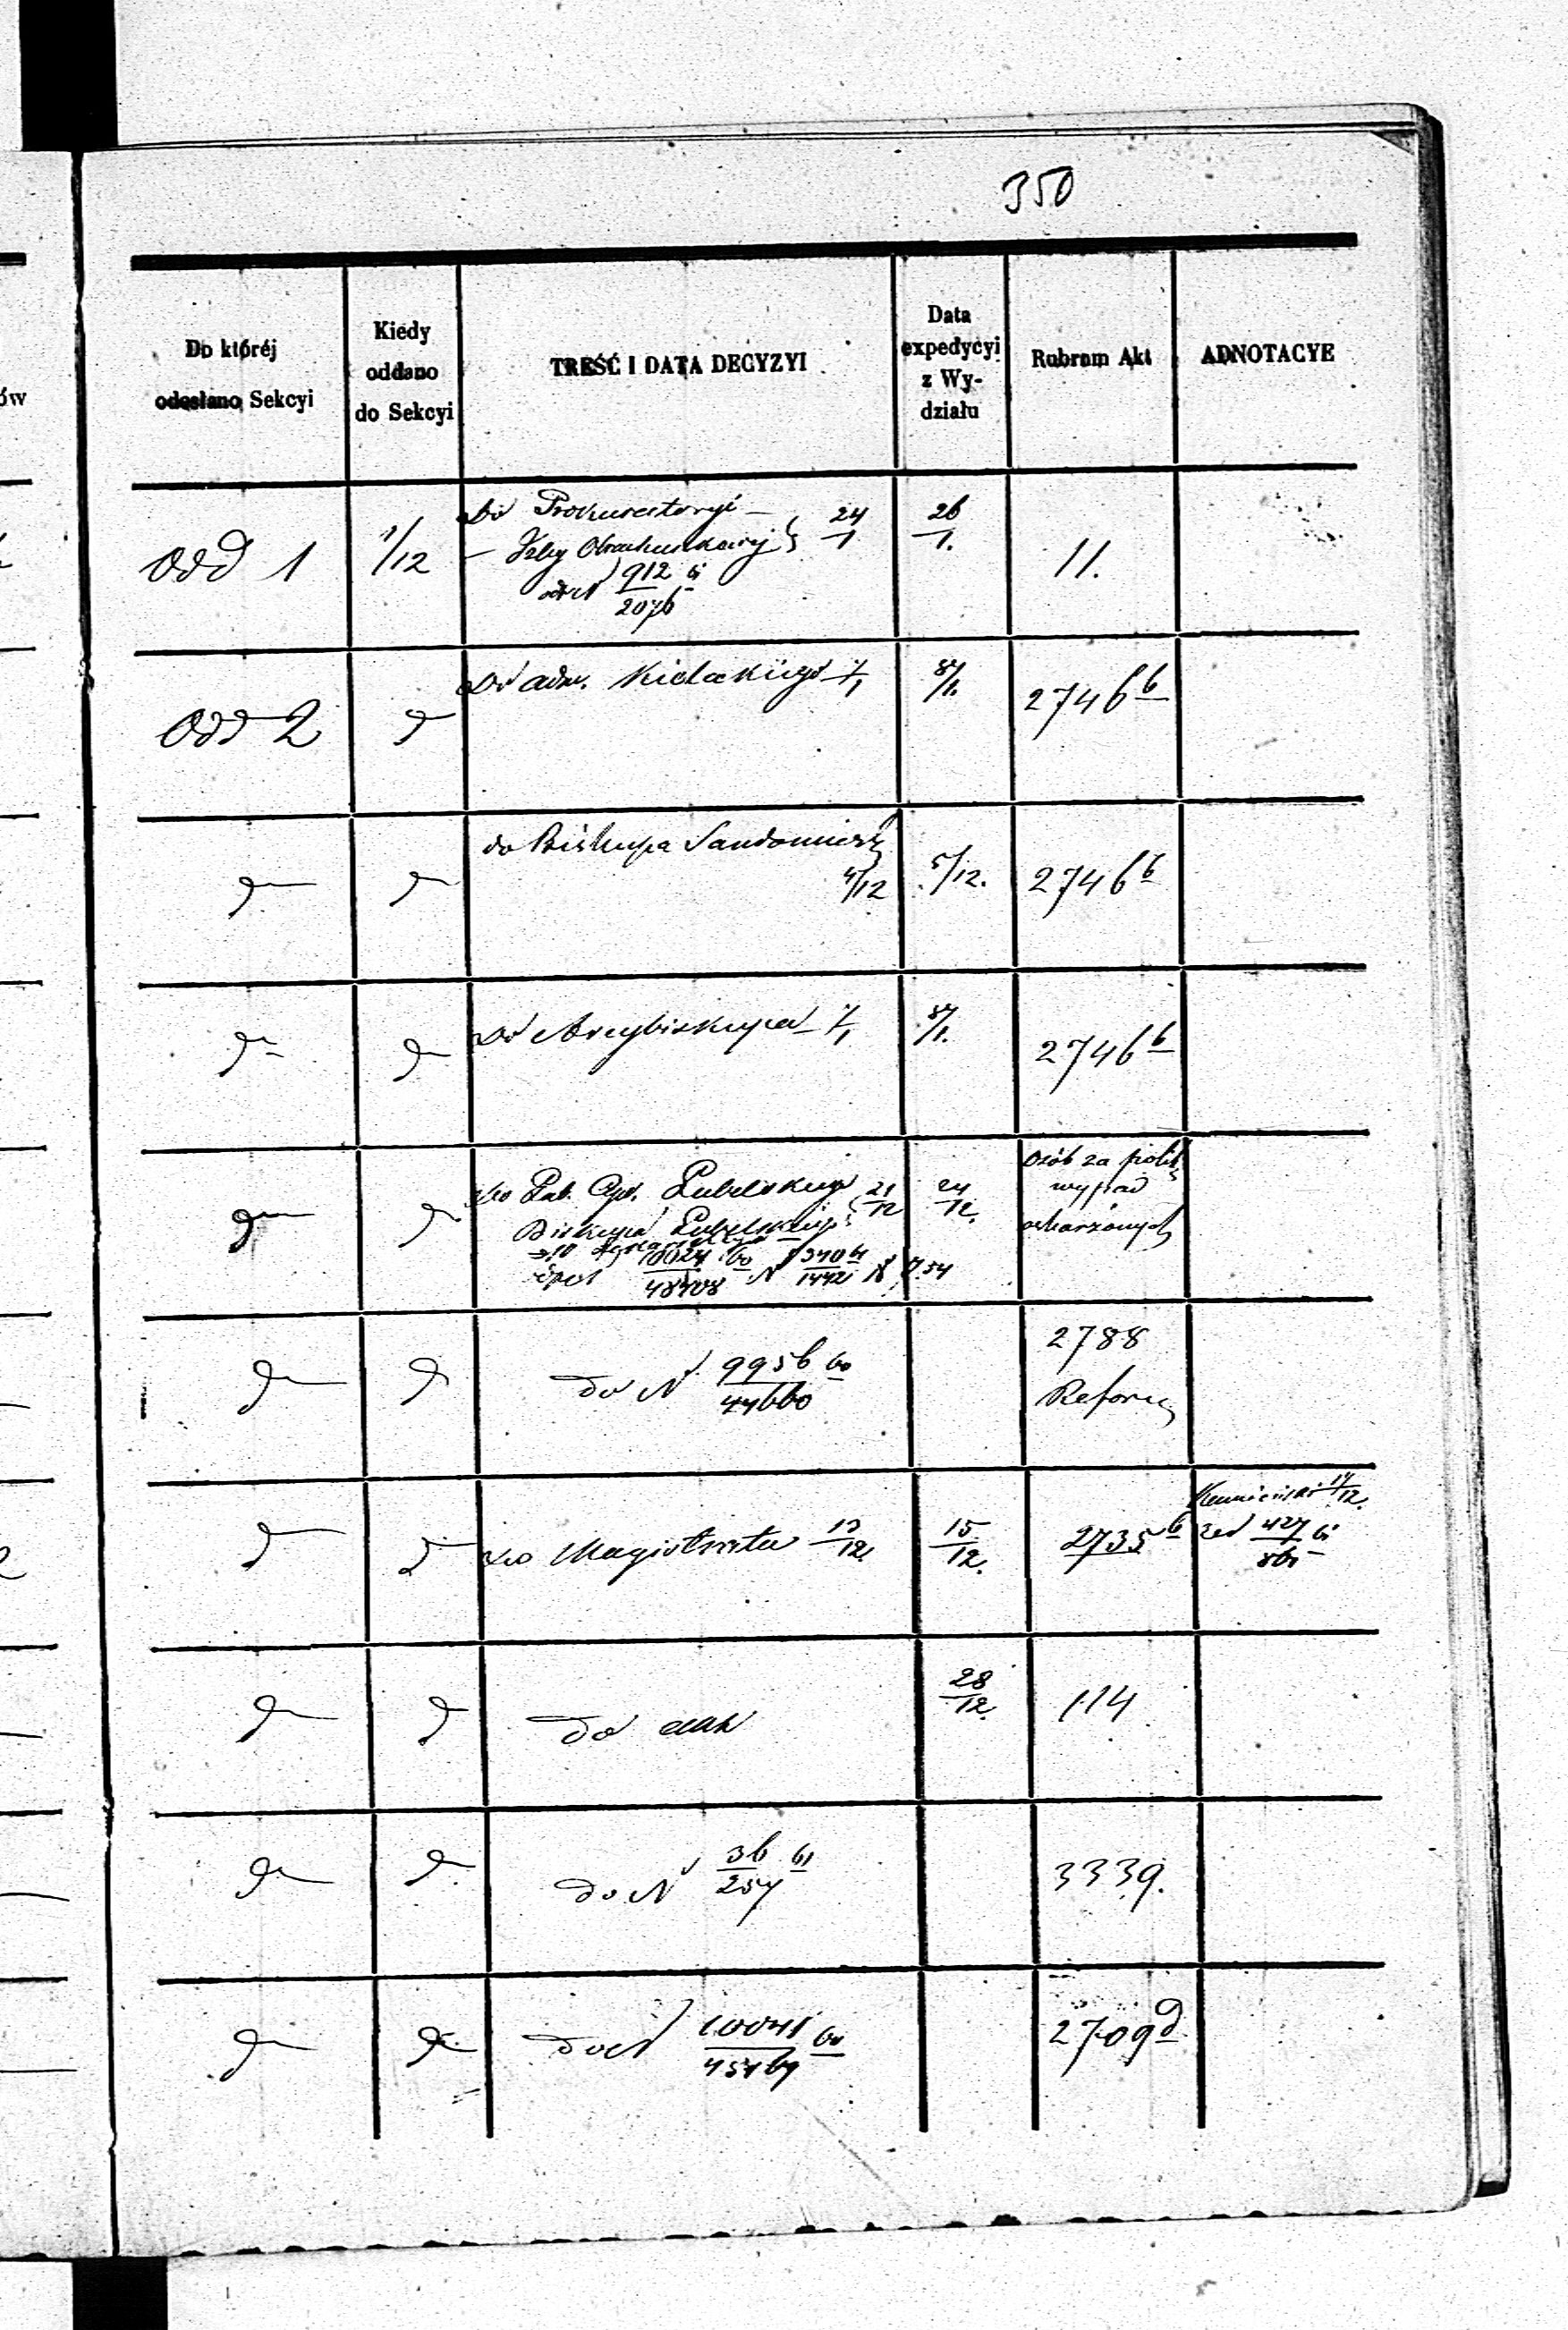 350
Do któréj odesłano Sekcyi
Kiedy oddano do Sekcyi
TREŚĆ I DATA DECYZYI
Data expedycyi z Wydziału
Rubrum Akt
ADNOTACYE
ów
Odd 1
1/12
Do Prokuratoryi
— Izby Obrachunkowej } 24/1
912/2076
26/1.
11.
Odd 2
d
Do adm. Kieleckiego 7/1
8/1.
2746 b
d
d
do Biskupa Sandomiersk
4/12
5/12.
2746 b
d
d
Do Arcybiskupa 7/1
8/1.
2746 b
d
d
Do Gub. Cyw. Lubelskiego
Biskupa Lubelskiego } 21/12
24/12.
Osób za polit
wypad
oskarżonych
d
d
do N 9956/44660 60
2788
Reform
d
d
Do Magistratu 13/12.
15/12.
2735 b
14/12.
427/861 61
d
d
do akt
28/12.
114
d
d
do N 36/257 61
3339.
d
d
do N 10041/45169 60
2709 d